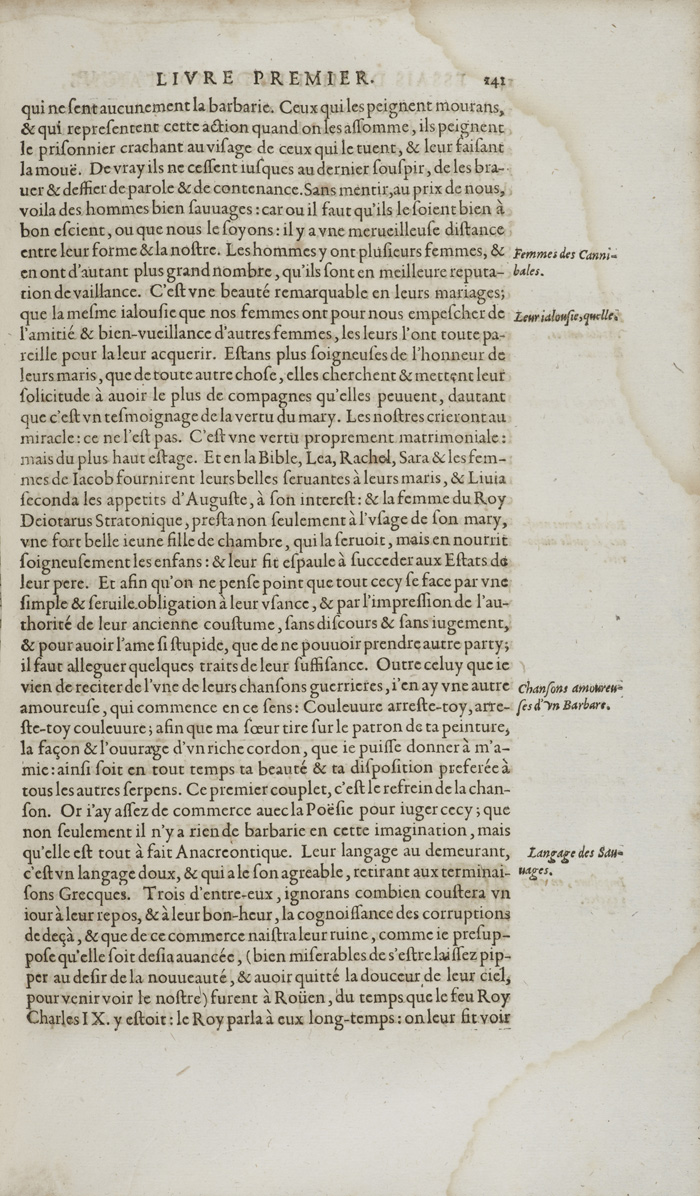 LIVRE PREMIER. 241
qui ne sent aucunement la barbarie. Ceux qui les peignent mourans,
& qui representent cette action quand on les assomme, ils peignent
le prisonnier crachant au visage de ceux qui le tuent, & leur faisant
la mouë. De vray ils ne cessent iusques au dernier souspir, de les bra-
uer & deffier de parole & de contenance. Sans mentir, au prix de nous,
voila des hommes bien sauuages : car ou il faut qu'ils le soient bien à
bon escient, ou que nous le soyons : il y a vne merueilleuse distance
entre leur forme & la nostre. Les hommes y ont plusieurs femmes, &
en ont d'autant plus grand nombre, qu'ils sont en meilleure reputa-
tion de vaillance. C'est vne beauté remarquable en leurs mariages;
que la mesme ialousie que nos femmes ont pour nous empescher de
l'amitié & bien-vueillance d'autres femmes, les leurs l'ont toute pa-
reille pour la leur acquerir. Estans plus soigneuses de l'honneur de
leurs maris, que de toute autre chose, elles cherchent & mettent leur
solicitude à auoir le plus de compagnes qu'elles peuuent, dautant
que c'est vn tesmoignage de la vertu du mary. Les nostres crieront au
miracle : ce ne l'est pas. C'est vne vertu proprement matrimoniale :
mais du plus haut estage. Et en la Bible, Lea, Rachel, Sara & les fem-
mes de Iacob fournirent leurs belles seruantes à leurs maris, & Liuia
seconda les appetits d'Auguste, à son interest : & la femme du Roy
Deiotarus Stratonique, presta non seulement à l'vsage de son mary,
vne fort belle ieune fille de chambre, qui la seruoit, mais en nourrit
soigneusement les enfans : & leur fit espaule à succeder aux Estats de
leur pere. Et afin qu'on ne pense point que tout cecy se face par vne
simple & seruile obligation à leur vsance, & par l'impression de l'au-
thorité de leur ancienne coustume, sans discours & sans iugement,
& pour auoir l'ame si stupide, que de ne pouuoir prendre autre party;
il faut alleguer quelques traits de leur suffisance. Outre celuy que ie
vien de reciter de l'vne de leurs chansons guerrieres, i'en ay vne autre
amoureuse, qui commence en ce sens : Couleuure arreste-toy, arre-
ste-toy couleuure; afin que ma sœur tire sur le patron de ta peinture,
la façon & l'ouurage d'vn riche cordon, que ie puisse donner à m'a-
mie : ainsi soit en tout temps ta beauté & ta disposition preferée à
tous les autres serpens. Ce premier couplet, c'est le refrein de la chan-
son. Or i'ay assez de commerce auec la Poësie pour iuger cecy; que
non seulement il n'y a rien de barbarie en cette imagination, mais
qu'elle est tout à fait Anacreontique. Leur langage au demeurant,
c'est vn langage doux, & qui a le son agreable, retirant aux terminai-
sons Grecques. Trois d'entre-eux, ignorans combien coustera vn
iour à leur repos, & à leur bon-heur, la cognoissance des corruptions
de deçà, & que de ce commerce naistra leur ruine, comme ie presup-
pose qu'elle soit desia auancée, (bien miserables de s'estre laissez pip-
per au desir de la nouueauté, & auoir quitté la douceur de leur ciel,
pour venir voir le nostre) furent à Roüen, du temps que le feu Roy
Charles IX. y estoit : le Roy parla à eux long-temps : on leur fit voir
Femmes des Canni-
bales.
Leur ialousie, quelle.
Chansons amoureu-
ses d'vn Barbare.
Langage des Sau-
uages.